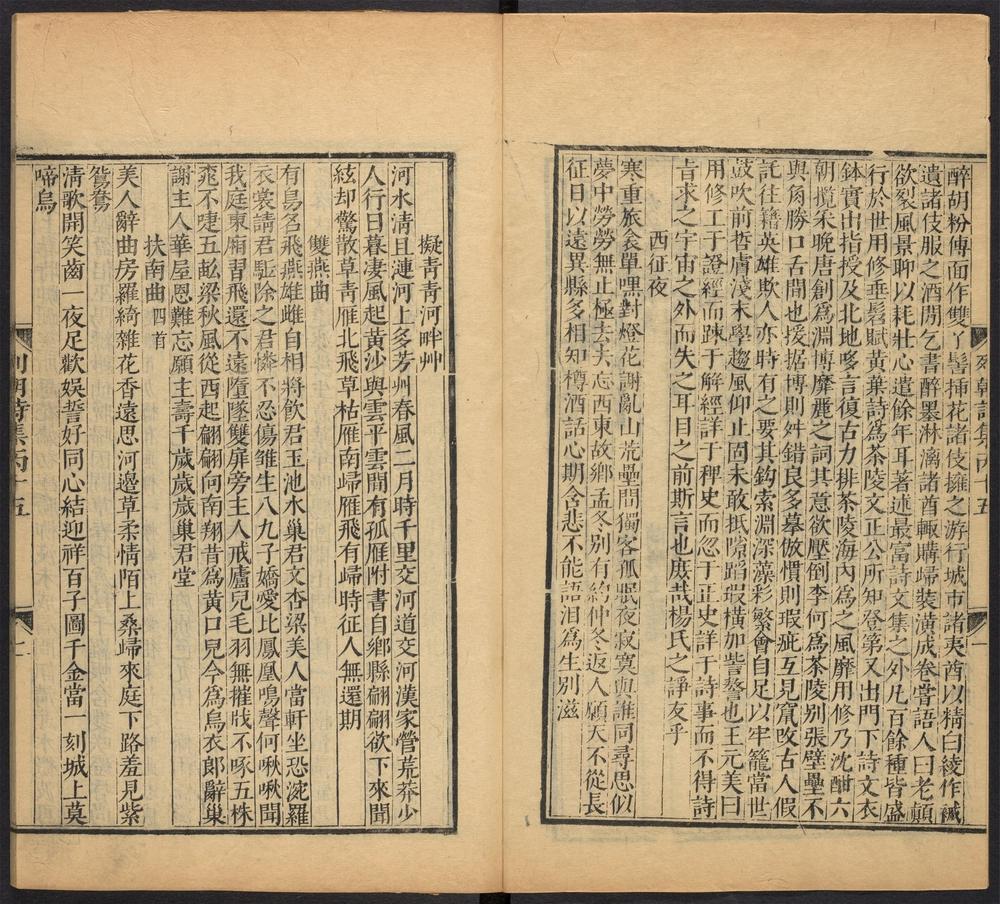 醉胡粉傅面作雙丫髻揷花諸伎擁之游行城市諸夷酋以精白綾作裓
遺諸伎服之酒閒乞書醉墨淋漓諸酋輙購歸裝潢成卷嘗語人曰老顛
欲裂風景聊以耗壯心遣餘年耳著述最富詩文集之外凡百餘種皆盛
行於世用修垂髫賦黃葉詩爲茶陵文正公所知登第又出門下詩文衣
鉢實出指授及北地哆言復古力排茶陵海內為之風靡用修乃沈酣六
朝攬采晚唐創爲淵博靡麗之詞其意欲壓倒李何爲茶陵别張壁壘不
與角勝口舌閒也援据博則舛錯良多摹倣慣則瑕疵互見竄攺古人假
託往籍英雄欺人亦時有之要其鈎索淵深藻彩繁會自足以牢籠當世
鼓吹前哲膚淺末學趨風仰止固未敢抵隙蹈瑕橫加訾謷也王元美曰
用修工于證經而踈于解經詳于稗史而忽于正史詳于詩事而不得詩
旨求之宇宙之外而失之耳目之前斯言也庶哉楊氏之諍友乎
西征夜
寒重旅衾單嘿對燈花謝亂山荒壘問獨客孤眠夜寂寞與誰同尋思似
夢中勞勞無止極去去忘西東故鄉孟冬别有約仲冬返人願天不從長
征日以遠異縣多相知樽酒話心期含悲不能語泪為生别滋
列朝詩集丙十五
一
擬靑靑河畔艸
河水淸且漣河上多芳艸春風二月時千里交河道交河漢家營荒莽少
人行日暮淒風起黃沙與雲平雲閒有孤雁附書自鄉縣翩翩欲下來聞
絃却驚散草靑雁北飛草枯雁南歸雁飛有歸時征人無還期
雙燕曲
有鳥名飛燕雄雌自相將飮君玉池水巢君文杏梁美人當軒坐恐涴羅
衣裳請君駈除之君憐不忍傷雛生八九子嬌愛比鳳凰鳴聲何啾啾聞
我庭東廂習飛還不遠墮墜雙扉旁主人戒廬兒毛羽無摧戕不啄五株
粢不唼五畝粱秋風從西起翩翩向南翔昔爲黃口兒今為烏衣郞辭巢
謝主人華屋恩難忘願主壽千歲歲歲巢君堂
扶南曲四首
美人辭曲房羅綺雜花香遠思河邊草柔情陌上桑歸來庭下路羞見紫
鴛鴦
淸歌開笑齒一夜足歡娛誓好同心結迎祥百子圖千金當一刻城上莫
啼烏
列朝詩集丙十五